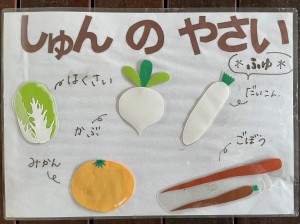 しゅん の やさい
＊ふゆ＊
はくさい
だいこん
かぶ
ごぼう
みかん